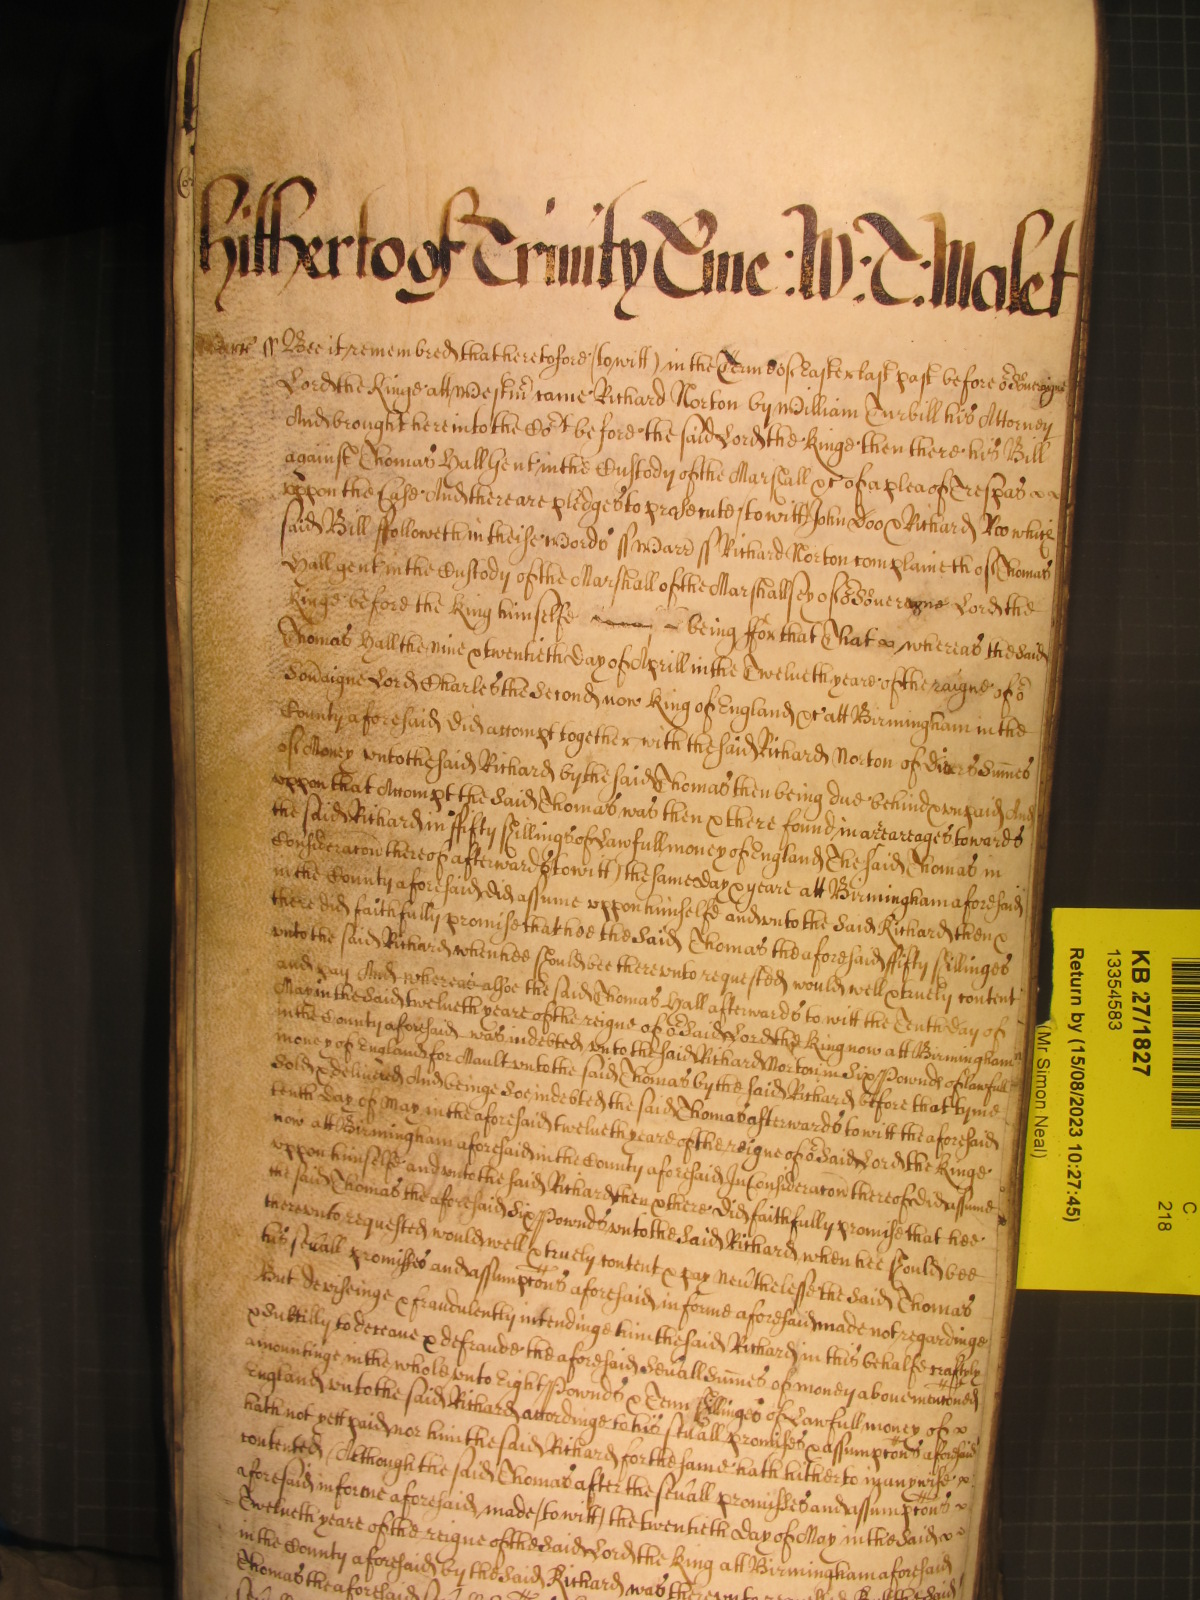 hitherto of Trinity Tme : W : T : Malet
Warr ss Bee it remembred that heretofore (to witt) in the Terme of Easter last past before or Soveraigne
Lord the Kinge att Westmr came Richard Norton by William Turbill his Attorney
And brought here into the Cort before the said Lord the Kinge then there his Bill
against Thomas Hall Gent in the Custody of the Marshall &c of a plea of Trespas
uppon the Case And there are pledges to prosecute (to witt) John Doo & Richard Roo which
said Bill ffolloweth in theise words ss Warr ss Richard Norton complaineth of Thomas
Hall gent in the Custody of the Marshall of the Marshallsey of or Soveraigne Lord the
Kinge before the King himselfe being ffor that That whereas the said
Thomas Hall the nine & twentieth day of Aprill in the Twelueth yeare of the raigne of or
Sovaigne Lord Charles the Second now King of England &c att Birmingham in the
County aforesaid did accompt together with the said Richard Norton of divers Summes
of Money unto the said Richard by the said Thomas then being due behind & unpaid And
uppon that Accompt the said Thomas was then & there found in arreareages towards
the said Richard in ffifty shillings of Lawfull money of England The said Thomas in
Consideracon thereof afterwards (to witt) the same day & yeare att Birmingham aforesaid
in the County aforesaid did assume uppon himselfe and unto the said Richard then &
there did faithfully promise that hee the said Thomas the aforesaid ffifty shillinges
unto the said Richard when hee should bee thereunto requested would well & truely content
and pay And whereas alsoe the said Thomas Hall afterwards to witt the Tenth day of
May in the said twelueth yeare of the reigne of or said Lord the King now att Birmingham
in the County aforesaid was indebted unto the said Richard Norton in Six Pownds of lawfull
money of England for Mault unto the said Thomas by the said Richard before that tyme
sold & delivered And beinge soe indebted the said Thomas afterwards to witt the aforesaid
tenth day of May in the aforesaid twelueth yeare of the reigne of or said Lord the Kinge
now att Birmingham aforesaid in the County aforesaid In Consideracon thereof did assume
uppon himselfe and unto the said Richard then & there did faithfully promise that hee
the said Thomas the aforesaid Six Pownds unto the said Richard when hee should bee
thereunto requested would well & truely content & pay Nevthelesse the said Thomas
his sevall promisses and assumptcons aforesaid in forme aforesaid made not regardinge
But deviseinge & fraudulently intendinge him the said Richard in this behalfe craftyly
& subtilly to deceave & defraude the aforesaid sevall Summes of money above mentconed
amountinge in the whole unto Eight Pownds & Tenn shillinges of Lawfull money of
England unto the said Richard accordinge to his sevall promises & assumptcons aforesaid
hath not yett paid nor him the said Richard for the same hath hitherto in any wise
contented Although the said Thomas after the sevall promisses and assumptcons
aforesaid in forme aforesaid made (to witt) the twentieth day of May in the said
Twelueth yeare of the reigne of the said Lord the King att Birmingham aforesaid
in the County aforesaid by the said Richard was thereunto requested But the said
Thomas the aforesaid
KB 27/1827
13354583
Return by (15/08/2023 10:27:45)
(Mr Simon Neal)
C
218